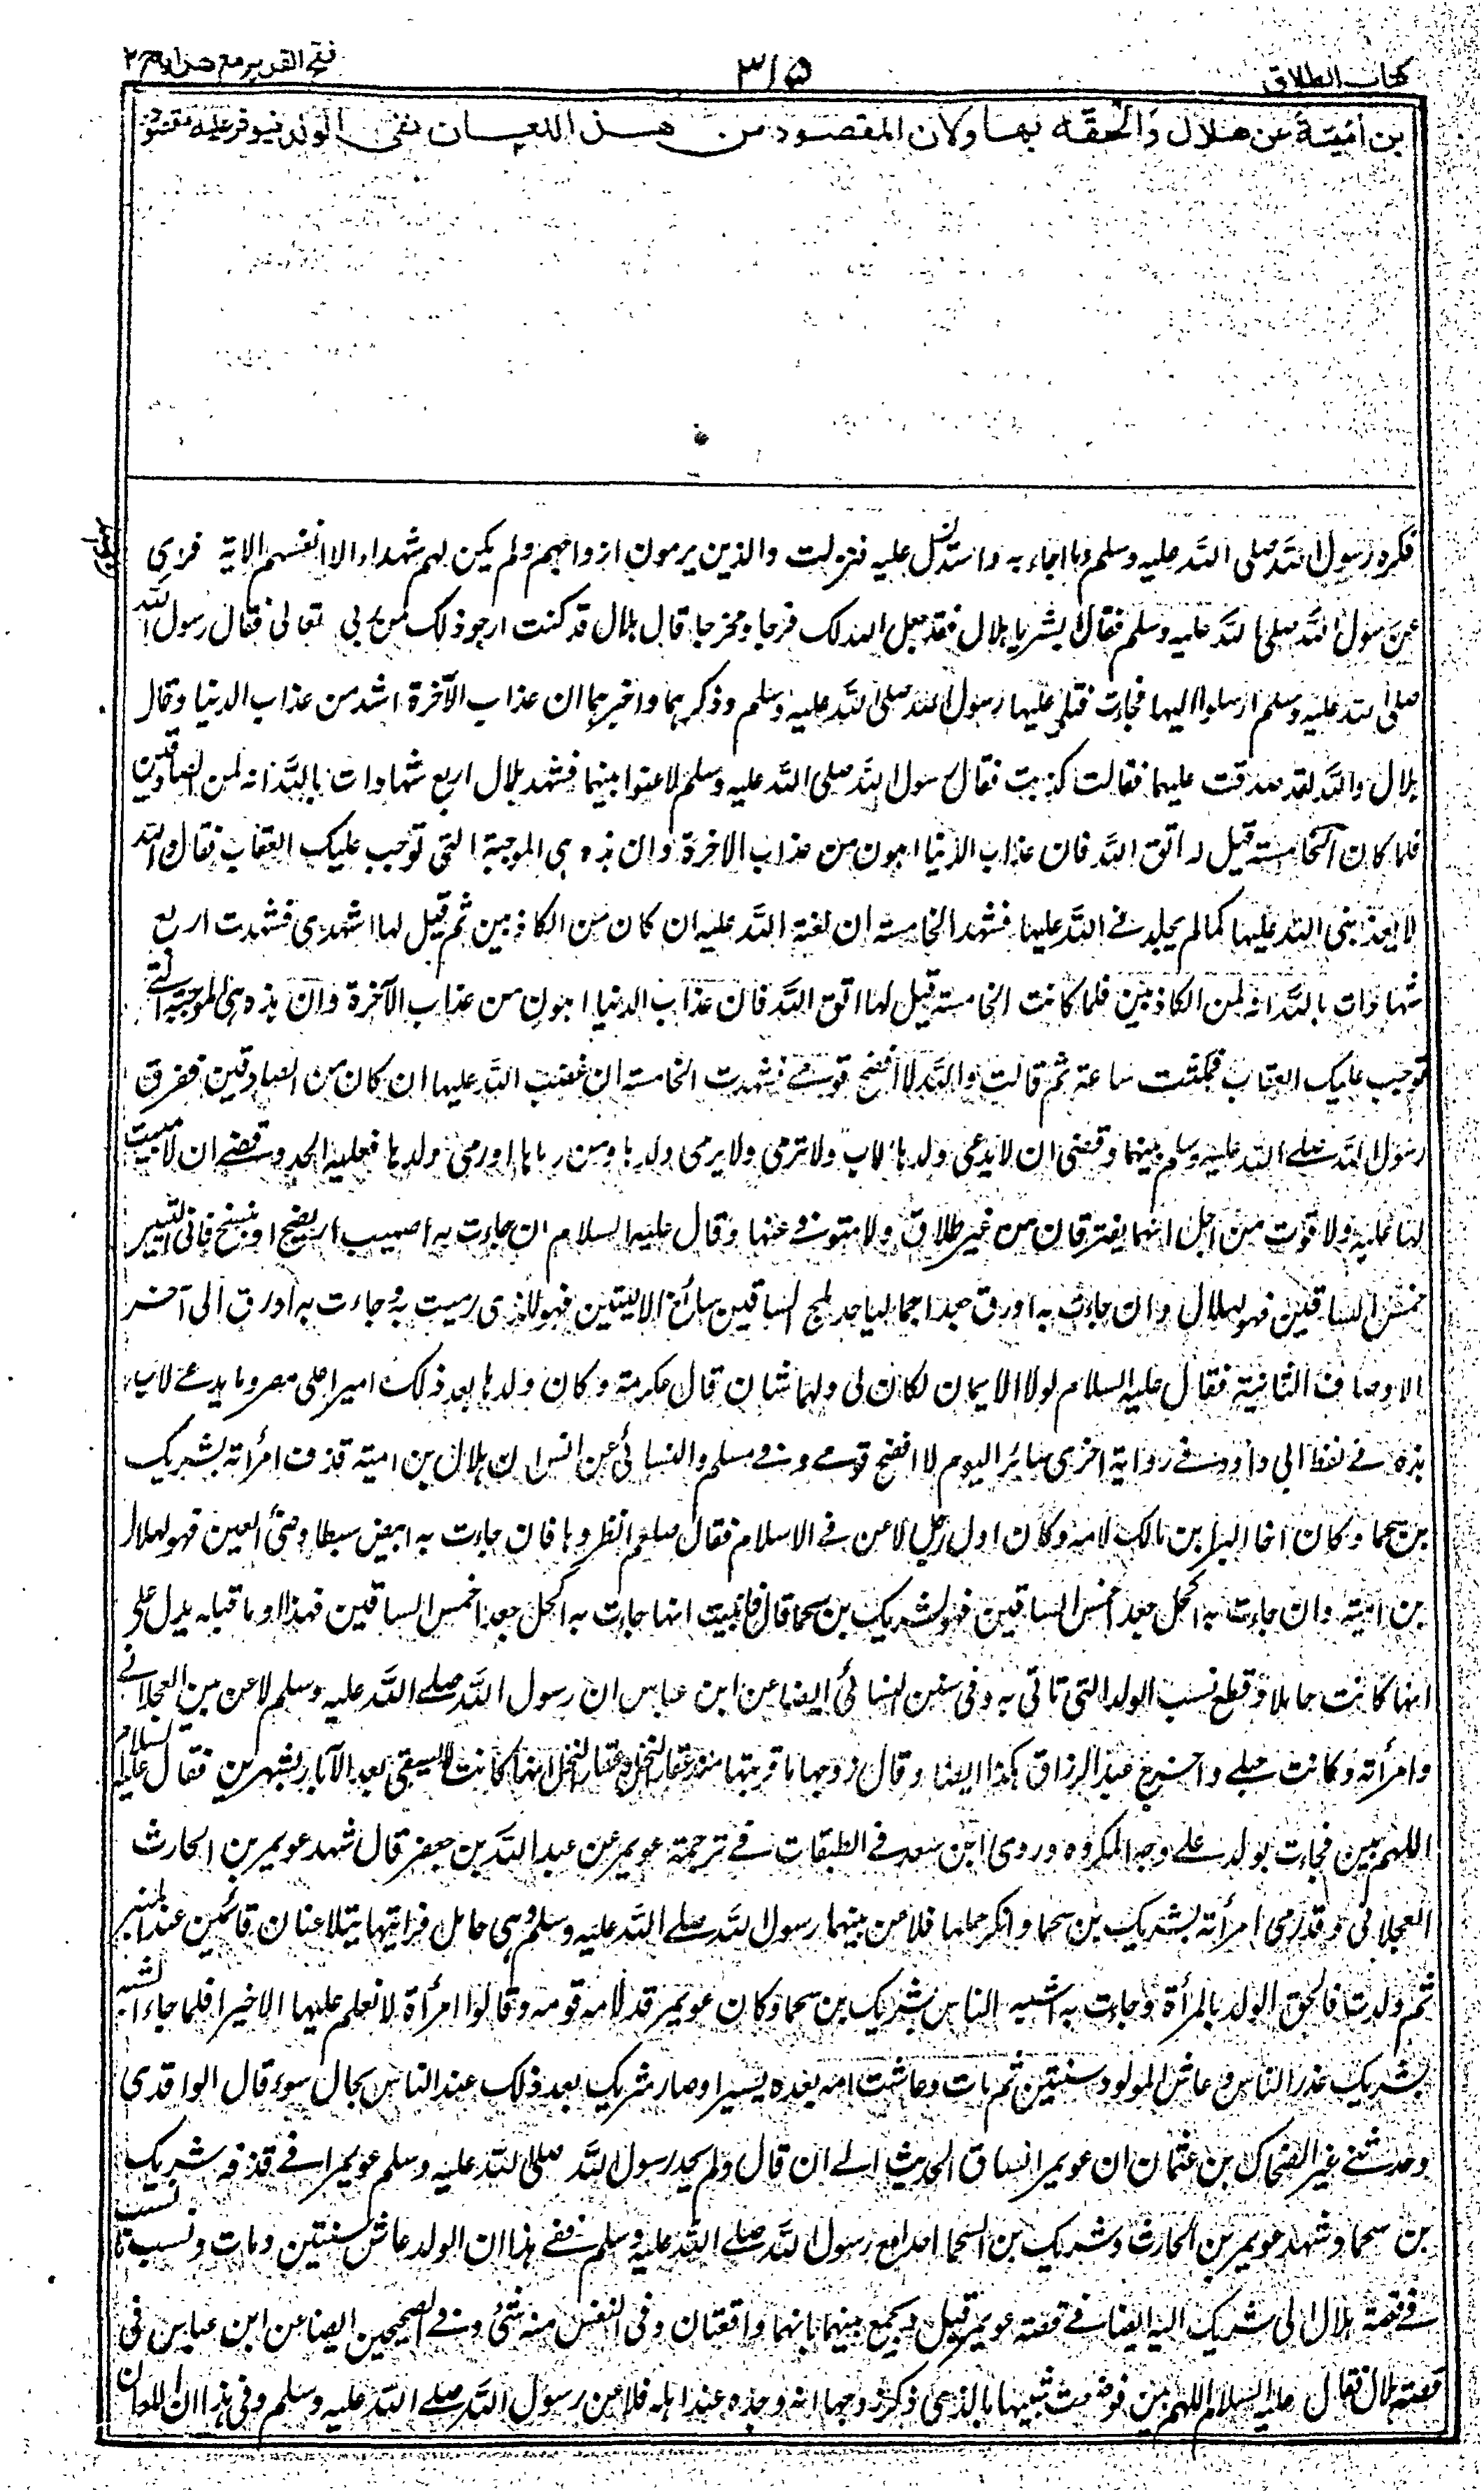 كتاب الطلاق
٣١٥
فتح القدير مع هدايه ج ٢
بن أمية عن هلال وألحقه بها ولان المقصود من هذا اللعان نفى الولد فيوفر عليه مقصوده
فكره رسول الله صلى الله عليه وسلم ما جاء به واشتد عليه فنزلت والذين يرمون ازواجهم ولم يكن لهم شهداء الا انفسهم الاية فسرى
عن رسول الله صلى الله عليه وسلم فقال ابشر يا هلال فقد جعل الله لك فرجا ومخرجا قال هلال قد كنت ارجو ذلك من ربى تعالى فقال رسول الله
صلى الله عليه وسلم ارسلوا اليها فجاءت فتلى عليها رسول الله صلى الله عليه وسلم وذكرهما واخبرهما ان عذاب الآخرة اشد من عذاب الدنيا وقال
هلال والله لقد صدقت عليها فقالت كذبت فقال رسول الله صلى الله عليه وسلم لاعنوا بينهما فشهد هلال اربع شهادات بالله انه لمن الصادقين
فلما كان الخامسة قيل له اتق الله فان عذاب الدنيا اهون من عذاب الاخرة وان هذه هى الموجبة التى توجب عليك العقاب فقال والله
لا يعذبنى الله عليها كما لم يجلدنى الله عليها فشهد الخامسة ان لعنة الله عليه ان كان من الكاذبين ثم قيل لها اشهدى فشهدت اربع
شهادات بالله انه لمن الكاذبين فلما كانت الخامسة قيل لها اتق الله فان عذاب الدنيا اهون من عذاب الآخرة وان هذه هى الموجبة التى
توجب عليك العقاب فمكثت ساعة ثم قالت والله لا افضح قومى فشهدت الخامسة ان غضب الله عليها ان كان من الصادقين ففرق
رسول الله صلى الله عليه وسلم بينهما وقضى ان لا يدعى ولدها لاب ولا ترمى ولا يرمى ولدها ومن رماها او رمى ولدها فعليه الحد وقضى ان لا مبيت
لها عليه ولا قوت من اجل انهما يفترقان من غير طلاق ولا متوفى عنها وقال عليه السلام ان جاءت به اصيهب اريصح
حمش الساقين فهو لهلال وان جاءت به اورق جعدا جماليا خدلج الساقين سابغ الاليتين فهو للذى رميت به وجاءت به اورق الى آخر
الاوصاف الثانية فقال عليه السلام لولا الايمان لكان لى ولها شان قال عكرمة وكان ولدها بعد ذلك اميرا على مصر وما يدعى لاب
هذه فى لفظ ابى داود وفى رواية اخرى سائر اليوم لا افضح قومى وفى مسلم والنسائى عن انس ان هلال بن امية قذف امرأته بشريك
بن سحما وكان اخا البراء بن مالك لامه وكان اول رجل لاعن فى الاسلام فقال صلعم انظروها فان جاءت به ابيض سبطا وضئ العين فهو لهلال
بن امية وان جاءت به اكحل جعدا حمش الساقين فهو لشريك بن سحما قال فانبئت انها جاءت به اكحل جعدا حمش الساقين فهذا وما قبله يدل على
انها كانت حاملا وقطع نسب الولد التى تاتى به وفى سنن النسائى ايضا عن ابن عباس ان رسول الله صلى الله عليه وسلم لاعن بين العجلانى
وامرأته وكانت حبلى واخرج عبد الرزاق هكذا ايضا وقال زوجها ما قربتها منذ عفار النخل وعفار النخل انها كانت لا تسقى بعد الآبار بشهرين فقال عليه السلام
اللهم بين فجاءت بولد على وجه المكروه وروى ابن سعد فى الطبقات فى ترجمة عويمر عن عبد الله بن جعفر قال شهد عويمر بن الحارث
العجلانى وقد رمى امرأته بشريك بن سحما وانكر حملها فلاعن بينهما رسول الله صلى الله عليه وسلم وهى حامل فرأيتهما يتلاعنان قائمين عند المنبر
ثم ولدت فالحق الولد بالمرأة وجاءت به اشبه الناس بشريك بن سحما وكان عويمر قد لامه قومه وقالوا امرأة لا نعلم عليها الا خيرا فلما جاء الشبه
بشريك عذر الناس وعاش المولود سنتين ثم مات وعاشت امه بعده يسيرا وصار شريك بعد ذلك عند الناس بحال سوء قال الواقدى
وحدثنى غير الضحاك بن عثمان ان عويمرا فساق الحديث الى ان قال ولم يحد رسول الله صلى الله عليه وسلم عويمرا فى قذفه شريك
بن سحما وشهد عويمر بن الحارث وشريك بن السحما احدا مع رسول الله صلى الله عليه وسلم ففى هذا ان الولد عاش سنتين ومات ونسب
فى قصة هلال الى شريك اليه ايضا فى قصة عويمر قيل ويجمع بينهما بانهما واقعتان وفى النفس منه شئ وفى الصحيحين ايضا عن ابن عباس فى
قصة هلال فقال عليه السلام اللهم بين فوضعت شبيها بالذى ذكر زوجها انه وجده عند اهله فلاعن رسول الله صلى الله عليه وسلم وفى هذا ان اللعان